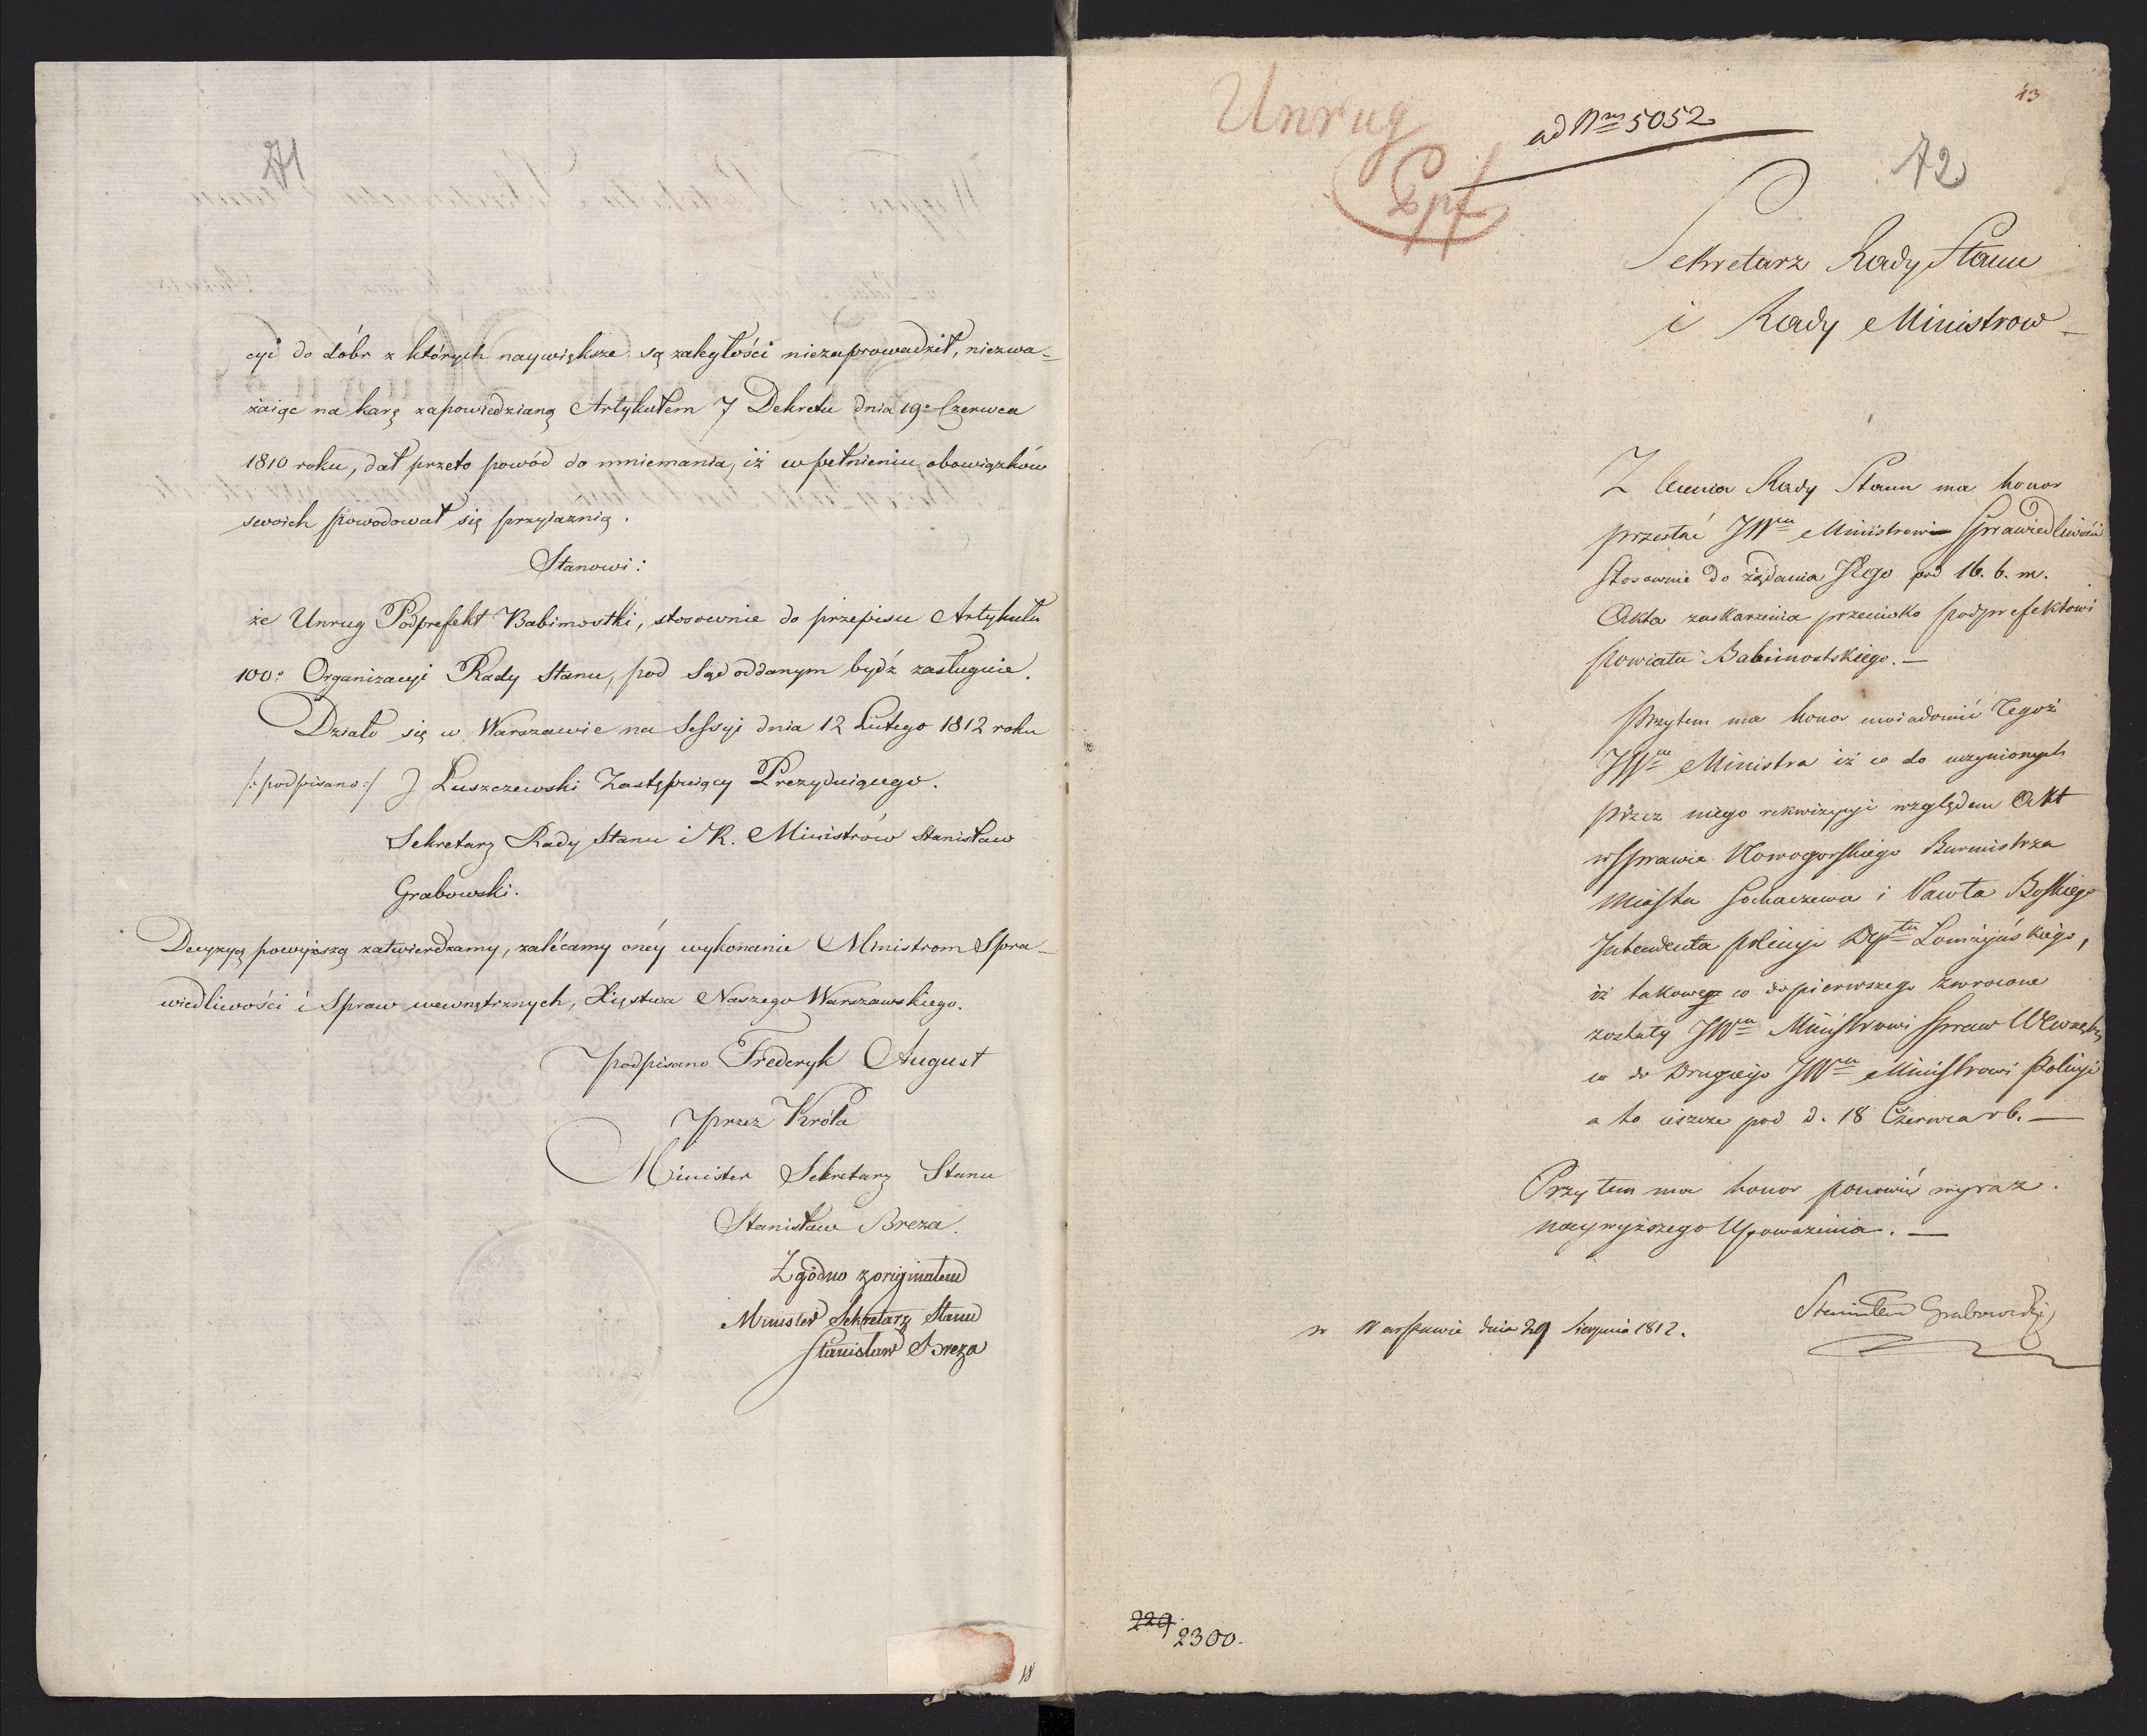 71
cyi do dóbr z których naywiększe są zaległości niezaprowadził, niezwa-
żaiąc na karę zapowiedzianą Artykułem 7 Dekretu dnia 19º Czerwca
1810 roku, dał przeto powód do mniemania, iż w pełnieniu obowiązków
swoich powodował się przyiaznią.
Stanowi:
że Unrug Podprefekt Babimostki, stosownie do przepisu Artykułu
100º Organizacyi Rady Stanu, pod Sąd oddanym bydź zasługuie.
Działo się w Warszawie na Sessyi dnia 12 Lutego 1812 roku
/:podpisano:/ J Łuszczewski Zastępuiący Prezyduiącego.
Sekretarz Rady Stanu i R. Ministrów Stanisław
Grabowski.
Decyzyą powyższą zatwierdzamy, zalécamy onéy wykonanie Ministrom Spra-
wiedliwości i Spraw wewnętrznych, Xięstwa Naszego Warszawskiego.
podpisano Frederyk August
przez Króla
Minister Sekretarz Stanu
Stanisław Breza.
Zgodno z originałem
Minister Sekretarz Stanu
Stanisław Breza
18
Unrug
Ppf
ad Nrm 5052
43
72
Sekretarz Rady Stanu
i Rady Ministrow
Z lecenia Rady Stanu ma honor
przesłać JWmu Ministrowi Sprawiedliwości
stosownie do żądania JEgo pod 16. b. m.
Akta zaskarżenia przeciwko podprefektowi
Powiatu Babimostskiego. —
Przytem ma honor uwiadomić Tegoż
JWgo Ministra iż co do uczynionych
przez niego rekwizycyi względem Akt
w Sprawie Nowogorskiego Burmistrza
Miasta Sochaczewa i Pawła Boskiego
Intendenta policyi Deptu Łomżyńskiego,
iż takowe co do pierwszego zwrocone
zostały JWmu Ministrowi Spraw Wewnętrz
co do Drugiego JWmu Ministrowi Policyi
a to ieszcze pod d. 18 Czerwca r b. —
Przy tem ma honor ponowić wyraz
naywyższego Uszoważenia. —
Stanisław Grabowski
w Warszawie dnia 29 Sierpnia 1812.
229
2300.